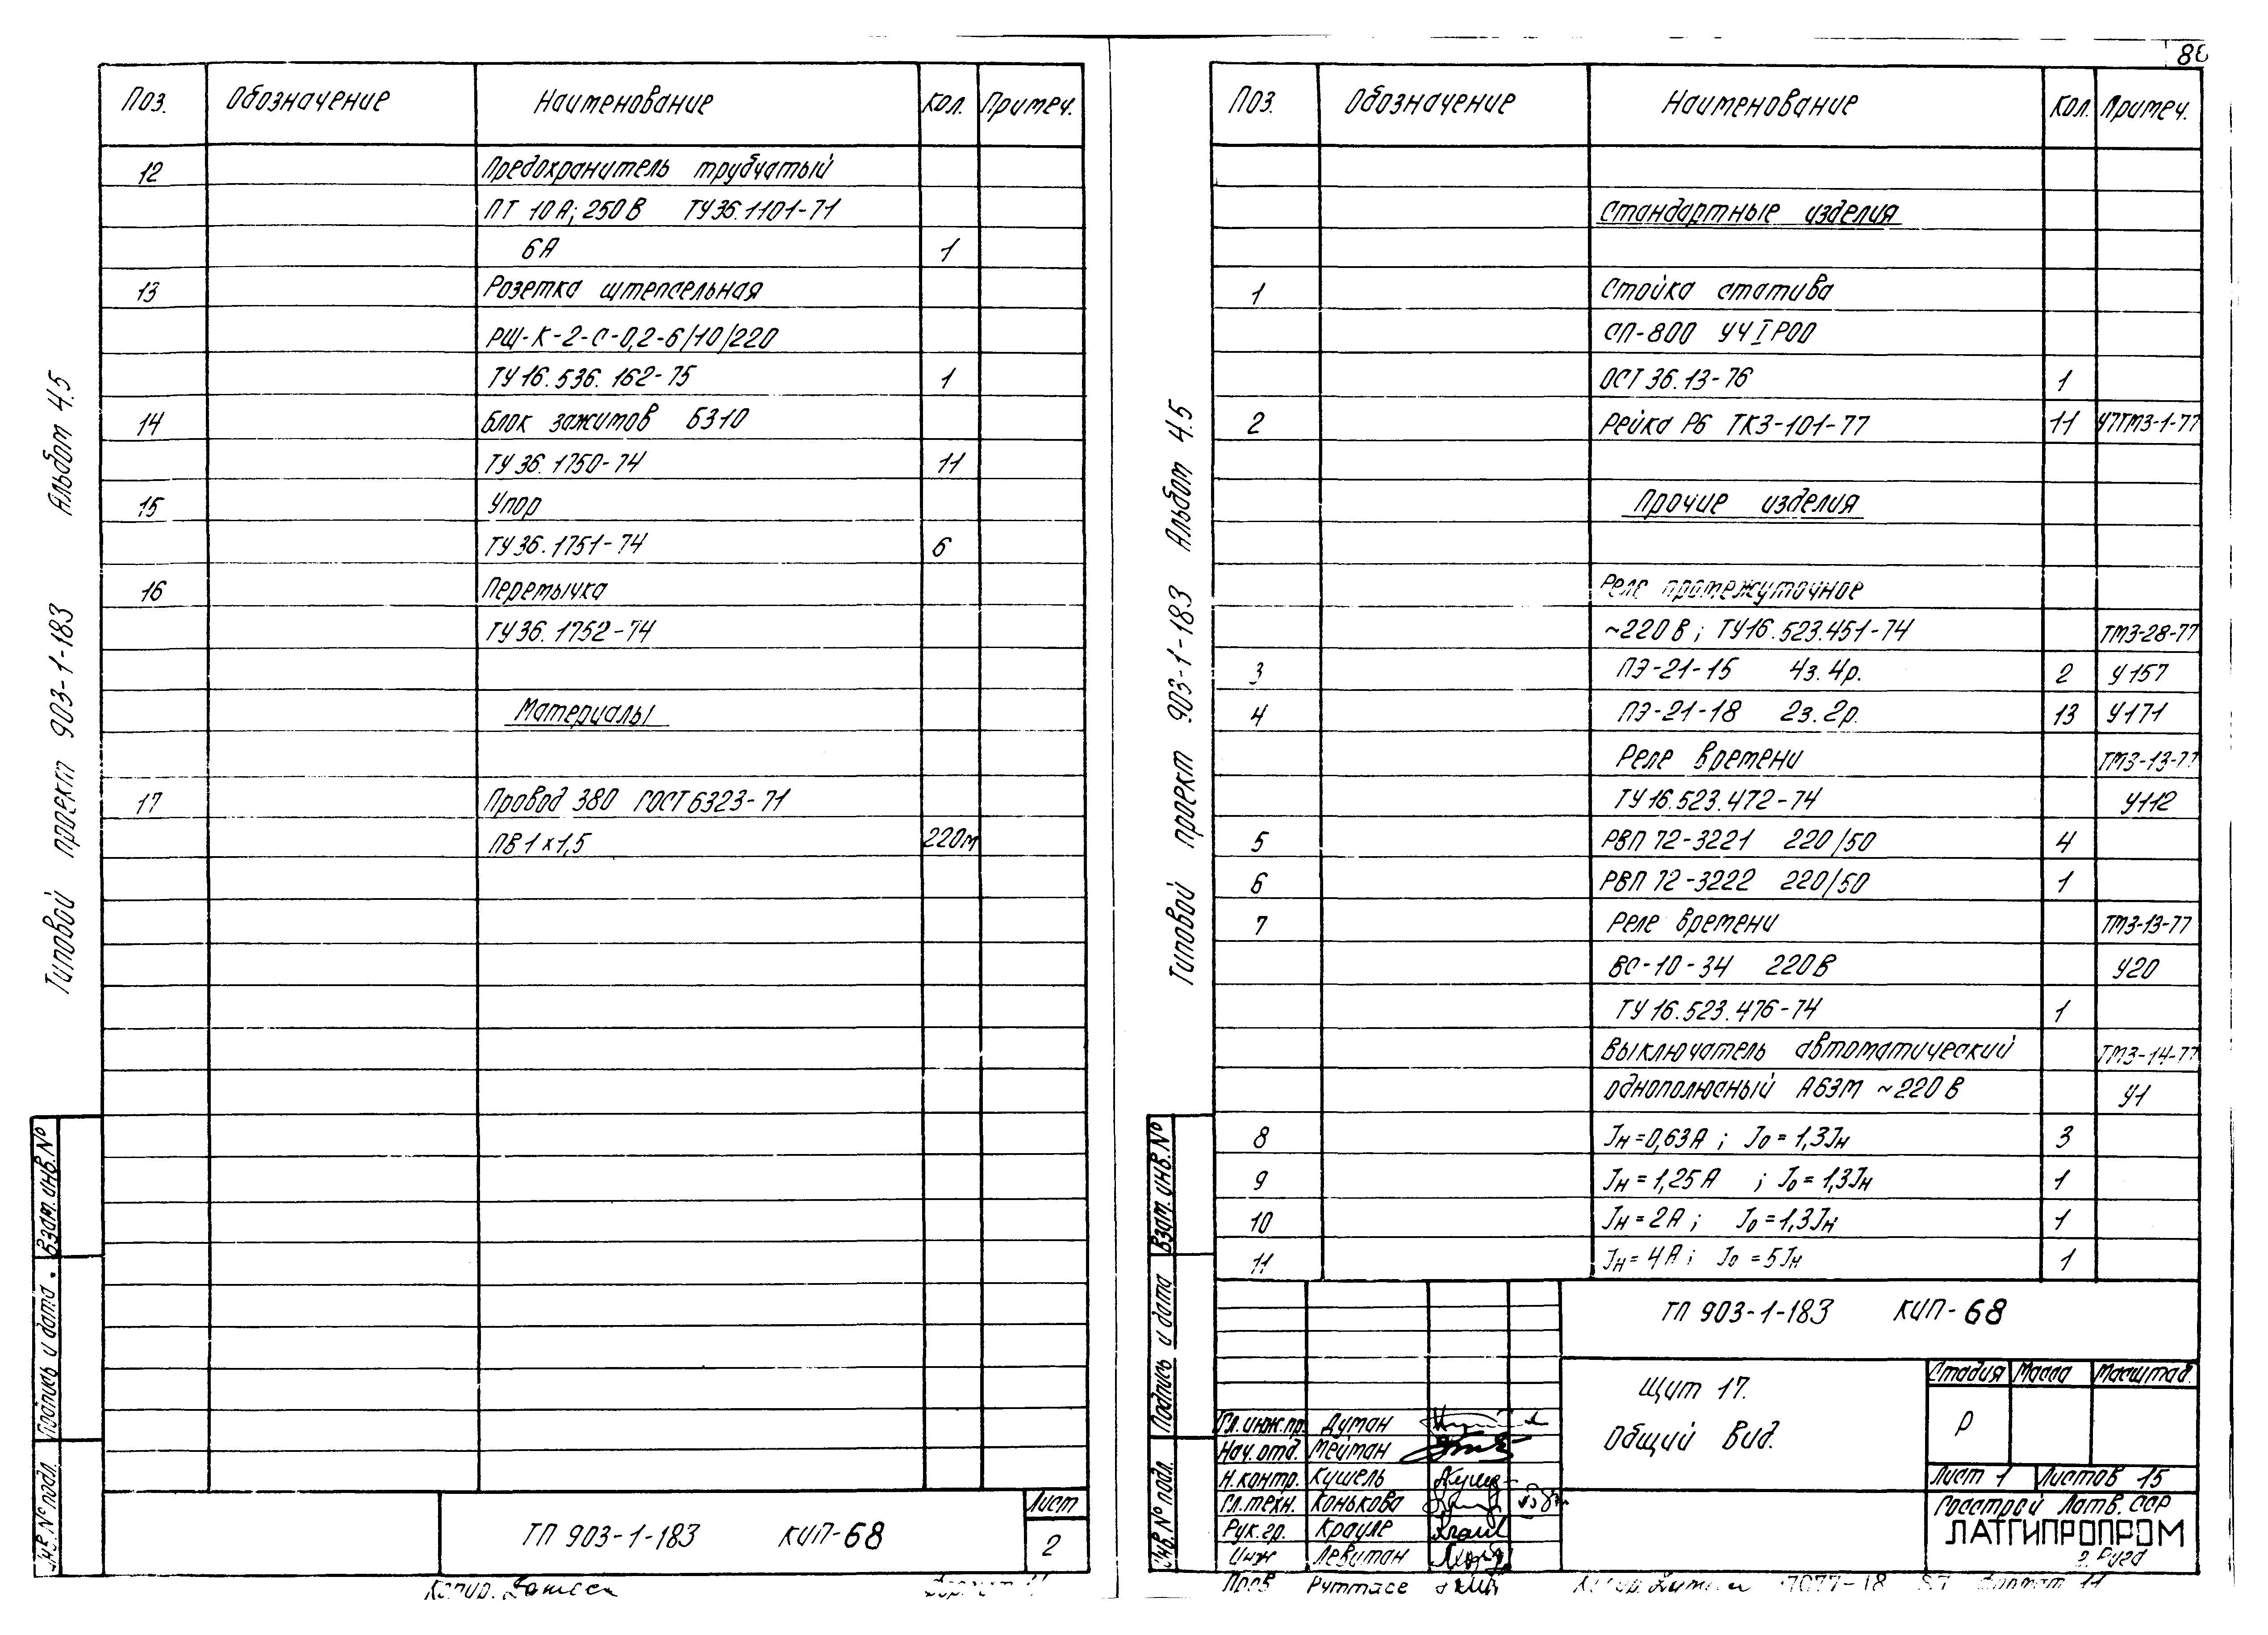 Альбом 4.5
Типовой проект 903-1-183
Поз. Обозначение Наименование Кол. Примеч.
12 Предохранитель трубчатый
ПТ 10А; 250В ТУ36.1101-71
6А 1
13 Розетка штепсельная
РЩ-К-2-С-0,2-6/10/220
ТУ16.536.162-75 1
14 Блок зажимов БЗ10
ТУ36.1750-74 11
15 Упор
ТУ36.1751-74 6
16 Перемычка
ТУ36.1752-74
Материалы
17 Провод 380 ГОСТ 6323-71
ПВ 1х1,5 220м
Взам. инв. №
Подпись и дата
Инв. № подл.
ТП 903-1-183 КИП-68
Лист
2
Копир.
Альбом 4.5
Типовой проект 903-1-183
Поз. Обозначение Наименование Кол. Примеч.
Стандартные изделия
1 Стойка статива
СП-800 УЧ I Р00
ОСТ 36.13-76 1
2 Рейка Р6 ТК3-101-77 11 У7ТМ3-1-77
Прочие изделия
Реле промежуточное
~220В; ТУ16.523.451-74 ТМ3-28-77
3 ПЭ-21-15 4з.4р. 2 У157
4 ПЭ-21-18 2з.2р. 13 У171
Реле времени ТМ3-13-77
ТУ16.523.472-74 У112
5 РВП 72-3221 220/50 4
6 РВП 72-3222 220/50 1
7 Реле времени ТМ3-13-77
ВС-10-34 220В У20
ТУ16.523.476-74 1
Выключатель автоматический ТМ3-14-77
однополюсный А63М ~220В У1
8 Jн=0,63А; Jо=1,3Jн 3
9 Jн=1,25А; Jо=1,3Jн 1
10 Jн=2А; Jо=1,3Jн 1
11 Jн=4А; Jо=5Jн 1
Взам. инв. №
Подпись и дата
Инв. № подл.
ТП 903-1-183 КИП-68
Щит 17.
Общий вид.
Стадия Масса Масштаб.
Р
Лист 1 Листов 15
Госстрой Латв. ССР
ЛАТГИПРОПРОМ
г. Рига
Гл. инж. пр. Думан
Нач. отд. Мейман
Н. контр. Кушель
Гл. техн. Конькова
Рук. гр. Крауле
Инж Левитан
Пров Руммасе
Формат 11